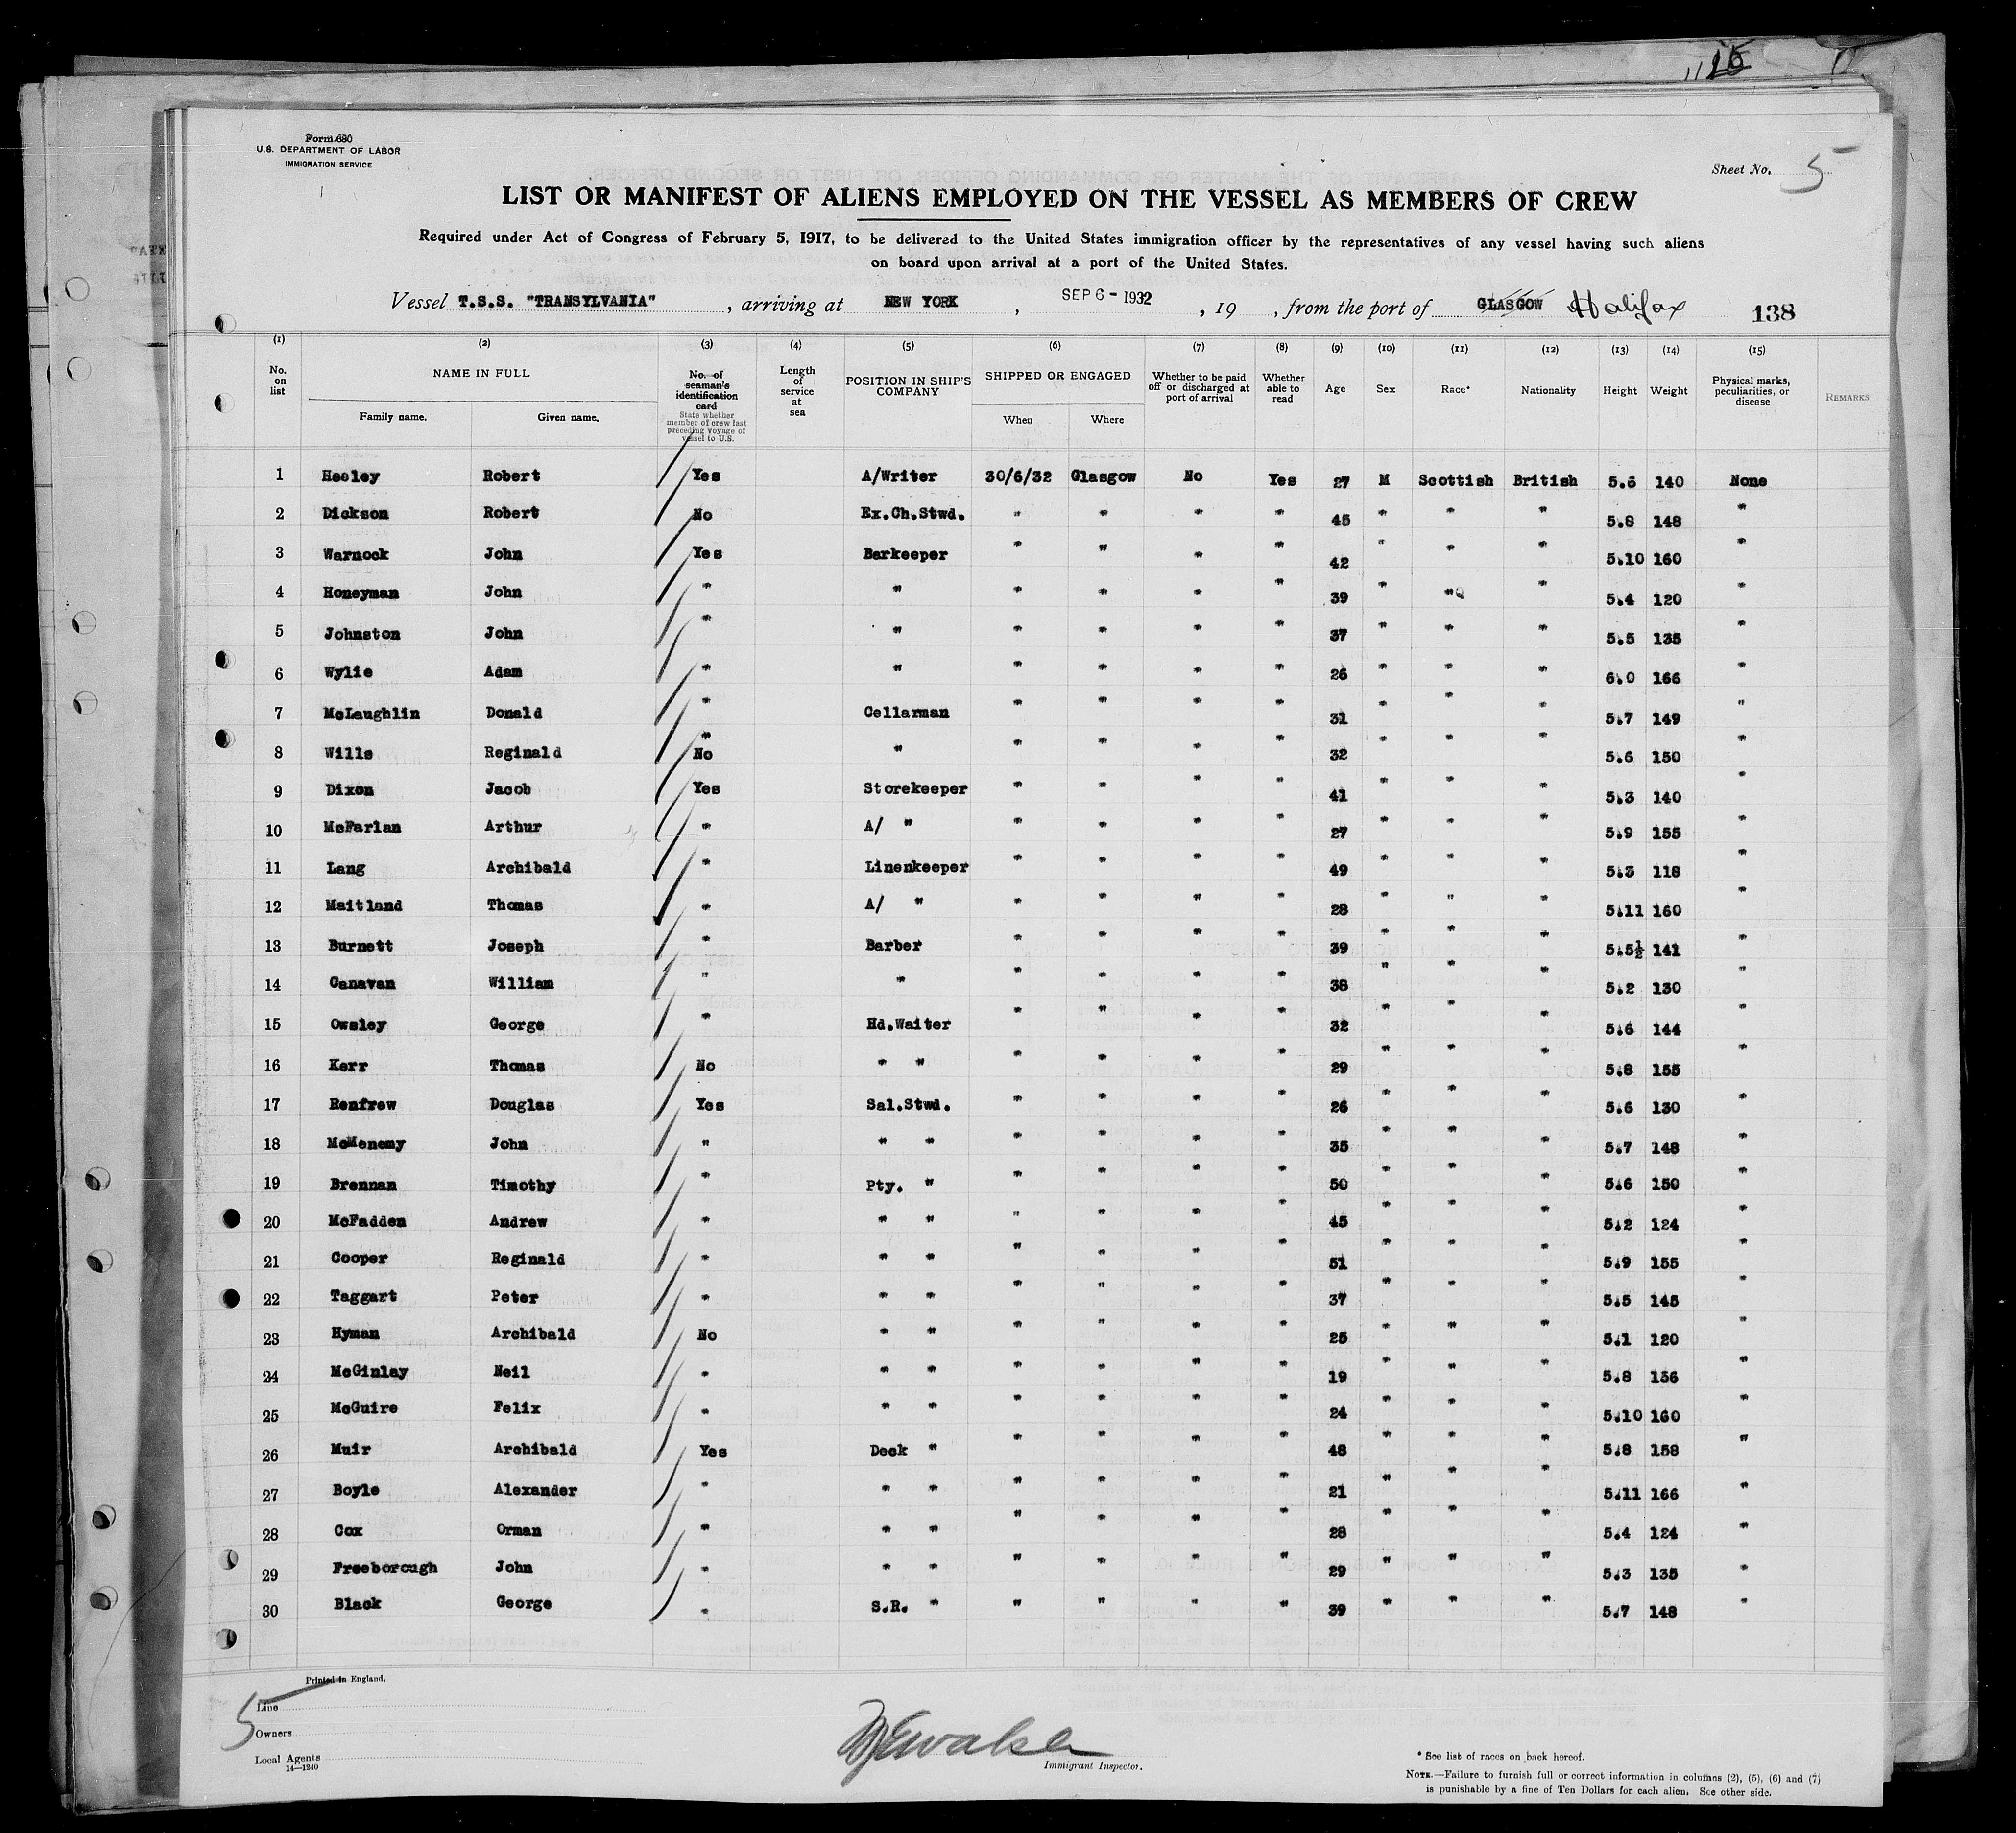 1115
Form 680
U.S. DEPARTMENT OF LABOR
IMMIGRATION SERVICE
Sheet No. 5
LIST OR MANIFEST OF ALIENS EMPLOYED ON THE VESSEL AS MEMBERS OF CREW
Required under Act of Congress of February 5, 1917, to be delivered to the United States immigration officer by the representatives of any vessel having such aliens
on board upon arrival at a port of the United States.
Vessel T.S.S. "TRANSYLVANIA", arriving at NEW YORK, SEP 6 - 1932, 19 , from the port of GLASGOW Halifax 138
(1) (2) (3) (4) (5) (6) (7) (8) (9) (10) (11) (12) (13) (14) (15)
No. on list NAME IN FULL Family name. Given name. No. of seaman's identification card State whether member of crew last preceding voyage of vessel to U.S. Length of service at sea POSITION IN SHIP'S COMPANY SHIPPED OR ENGAGED When Where Whether to be paid off or discharged at port of arrival Whether able to read Age Sex Race* Nationality Height Weight Physical marks, peculiarities, or disease REMARKS
1 Heeley Robert Yes A/Writer 30/6/32 Glasgow No Yes 27 M Scottish British 5.6 140 None
2 Dickson Robert No Ex.Ch.Stwd. " " " " 45 " " " 5.8 148 "
3 Warnock John Yes Barkeeper " " " " 42 " " " 5.10 160 "
4 Honeyman John " " " " " " 39 " " " 5.4 120 "
5 Johnston John " " " " " " 37 " " " 5.5 135 "
6 Wylie Adam " " " " " " 26 " " " 6.0 166 "
7 McLaughlin Donald " Cellarman " " " " 31 " " " 5.7 149 "
8 Wills Reginald " No " " " " " 32 " " " 5.6 150 "
9 Dixon Jacob Yes Storekeeper " " " " 41 " " " 5.3 140 "
10 McFarlan Arthur " A/ " " " " " 27 " " " 5.9 155 "
11 Lang Archibald " Linenkeeper " " " " 49 " " " 5.3 118 "
12 Maitland Thomas " A/ " " " " " 28 " " " 5.11 160 "
13 Burnett Joseph " Barber " " " " 39 " " " 5.5½ 141 "
14 Canavan William " " " " " " 38 " " " 5.2 130 "
15 Owsley George " Hd.Waiter " " " " 32 " " " 5.6 144 "
16 Kerr Thomas No " " " " " " 29 " " " 5.8 155 "
17 Renfrew Douglas Yes Sal.Stwd. " " " " 26 " " " 5.6 130 "
18 McMenemy John " " " " " " " 35 " " " 5.7 148 "
19 Brennan Timothy " Pty. " " " " " 50 " " " 5.6 150 "
20 McFadden Andrew " " " " " " " 45 " " " 5.2 124 "
21 Cooper Reginald " " " " " " " 51 " " " 5.9 155 "
22 Taggart Peter " " " " " " " 37 " " " 5.5 145 "
23 Hyman Archibald No " " " " " " 25 " " " 5.1 120 "
24 McGinlay Neil " " " " " " " 19 " " " 5.8 136 "
25 McGuire Felix " " " " " " " 24 " " " 5.10 160 "
26 Muir Archibald Yes Deck " " " " " 48 " " " 5.8 158 "
27 Boyle Alexander " " " " " " " 21 " " " 5.11 166 "
28 Cox Orman " " " " " " " 28 " " " 5.4 124 "
29 Freeborough John " " " " " " " 29 " " " 5.3 135 "
30 Black George " S.R. " " " " " 39 " " " 5.7 148 "
Printed in England.
5
Line
Owners
Local Agents
14—1240
Immigrant Inspector.
* See list of races on back hereof.
NOTE.—Failure to furnish full or correct information in columns (2), (5), (6) and (7)
is punishable by a fine of Ten Dollars for each alien. See other side.